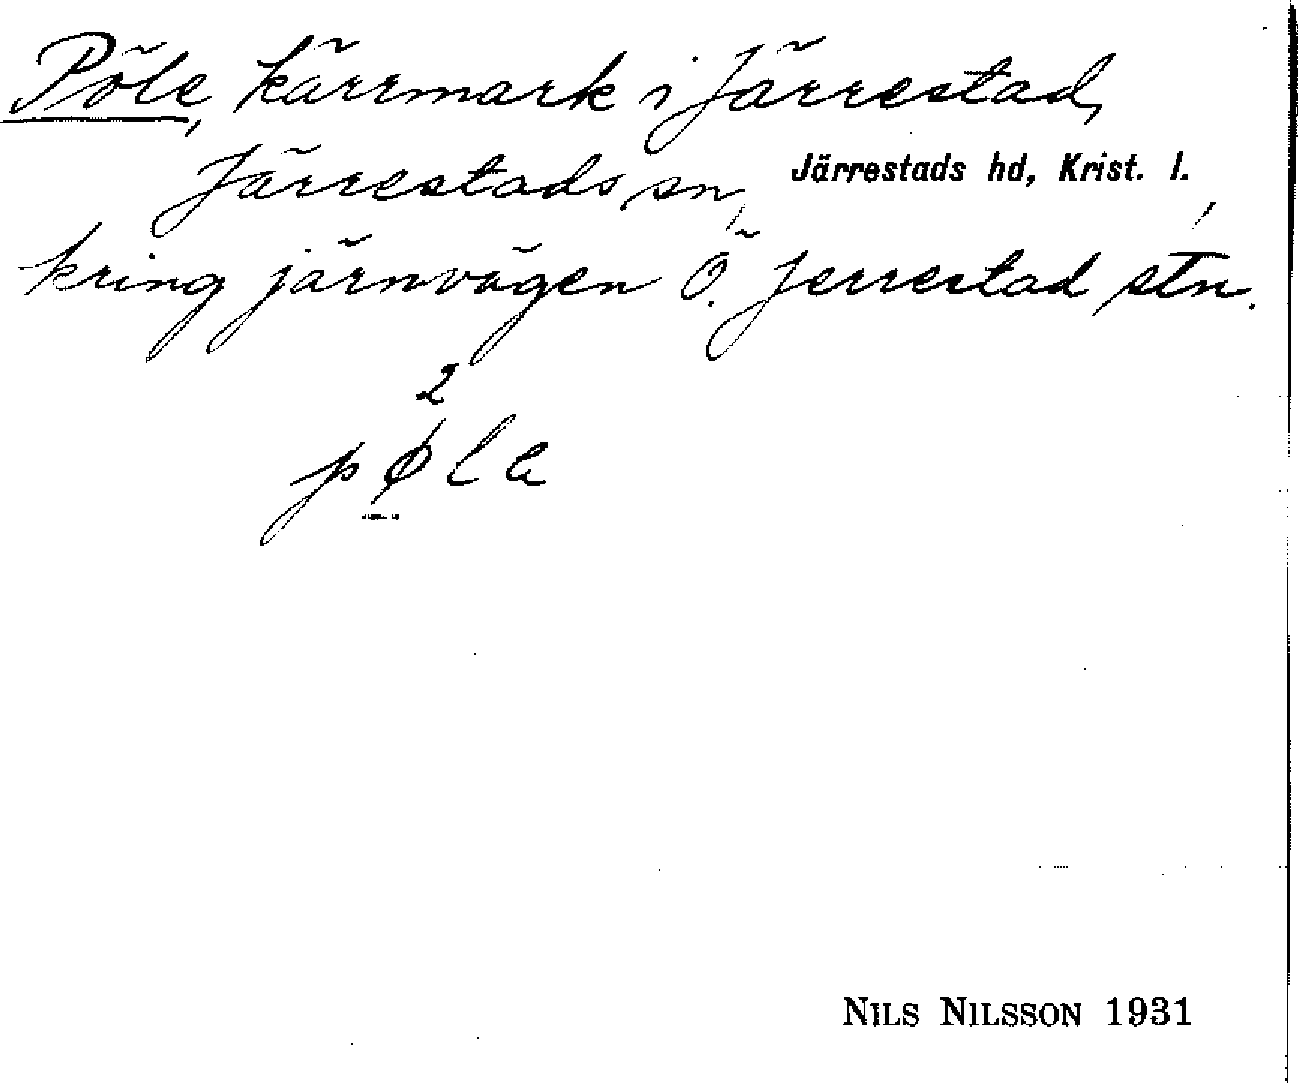 Pöle, kärrmark i Järrestad,
Järrestads sn, Järrestads hd, Krist. l.
kring järnvägen Ö. Jerrestad stn.
2
pøla
NILS NILSSON 1931